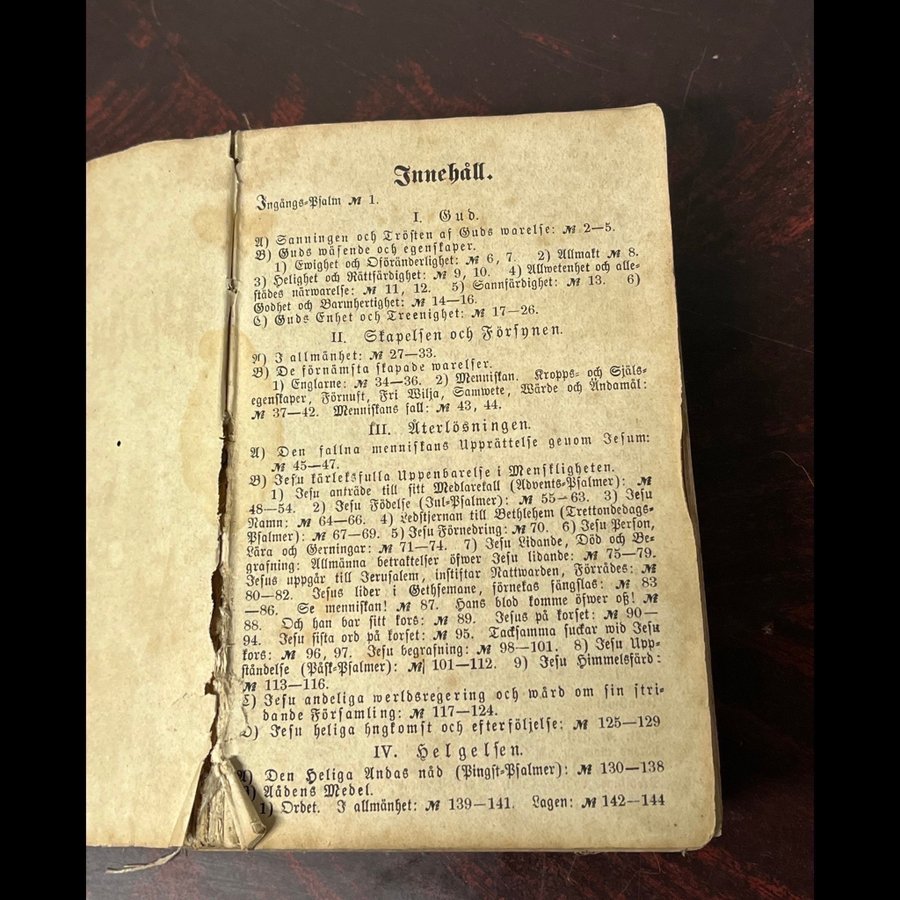 Innehåll.
Ingångs-Psalm № 1.
I. Gud.
A) Sanningen och Trösten af Guds warelse: № 2—5.
B) Guds wäsende och egenskaper.
1) Ewighet och Oföränderlighet: № 6, 7. 2) Allmakt № 8.
3) Helighet och Rättfärdighet: № 9, 10. 4) Allwetenhet och alle-
städes närwarelse: № 11, 12. 5) Sannfärdighet: № 13. 6)
Godhet och Barmhertighet: № 14—16.
C) Guds Enhet och Treenighet: № 17—26.
II. Skapelsen och Försynen.
A) I allmänhet: № 27—33.
B) De förnämsta skapade warelser.
1) Englarne: № 34—36. 2) Menniskan. Kropps- och Själs-
egenskaper, Förnuft, Fri Wilja, Samwete, Wärde och Ändamål:
№ 37—42. Menniskans fall: № 43, 44.
III. Återlösningen.
A) Den fallna menniskans Upprättelse genom Jesum:
№ 45—47.
B) Jesu kärleksfulla Uppenbarelse i Menskligheten.
1) Jesu anträde till sitt Medlarekall (Advents-Psalmer): №
48—54. 2) Jesu Födelse (Jul-Psalmer): № 55—63. 3) Jesu
Namn: № 64—66. 4) Ledstjernan till Bethlehem (Trettondedags-
Psalmer): № 67—69. 5) Jesu Förnedring: № 70. 6) Jesu Person,
Lära och Gerningar: № 71—74. 7) Jesu Lidande, Död och Be-
grafning: Allmänna betraktelser öfwer Jesu lidande: № 75—79.
Jesus uppgår till Jerusalem, instiftar Nattwarden, Förrådes: №
80—82. Jesus lider i Gethsemane, förnekas fängslas: № 83
—86. Se menniskan! № 87. Hans blod komme öfwer oß! №
88. Och han bar sitt kors: № 89. Jesus på korset: № 90—
94. Jesu sista ord på korset: № 95. Tacksamma suckar wid Jesu
kors: № 96, 97. Jesu begrafning: № 98—101. 8) Jesu Upp-
ståndelse (Påsk-Psalmer): № 101—112. 9) Jesu Himmelsfärd:
№ 113—116.
C) Jesu andeliga werldsregering och wård om sin stri-
dande Församling: № 117—124.
D) Jesu heliga hngkomst och efterföljelse: № 125—129
IV. Helgelsen.
A) Den Heliga Andas nåd (Pingst-Psalmer): № 130—138
B) Nådens Medel.
1) Ordet. I allmänhet: № 139—141. Lagen: № 142—144